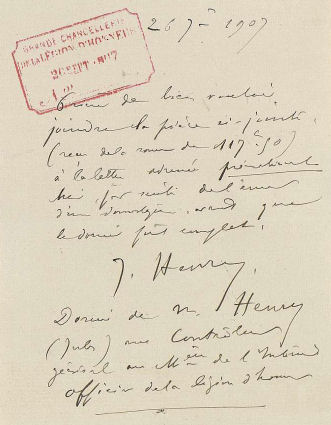 26 7bre 1907
GRANDE CHANCELLERIE
DE LA LÉGION D'HONNEUR
26 SEPT. 1907
Prière de bien vouloir
joindre la pièce ci-jointe
(reçu de la somme de 117f,50)
à la lettre adressée précédemment
par suite de l'envoi
avant que
le dossier fût complet.
J. Henry.
Dossier de M. Henry
(Jules) Contrôleur
général au Mère de l'Intérieur
officier de la légion d'honneur